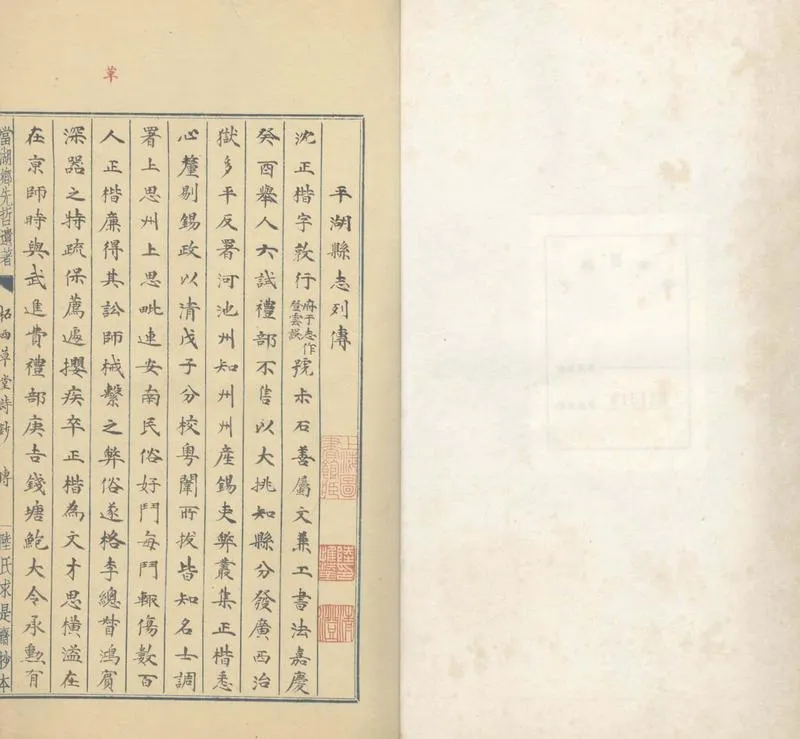 平湖縣志列傳
沈正楷字敦行府于志作登雲誤號石善屬文兼工書法嘉慶
癸酉舉人六試禮部不售以大挑知縣分發廣西治
獄多平反署河池州知州州產錫吏弊叢集正楷悉
心釐剔錫政以清戊子分校粵闈所拔皆知名士調
署上思州上思毗連安南民俗好鬥每鬥輒傷數百
人正楷廉得其訟師械繫之弊俗遂格李總督鴻賓
深器之特疏保薦遽攖疾卒正楷為文才思橫溢在
在京師時與武進費禮部庚吉錢塘鮑大令承勳有
當湖鄉先哲遺著
柘西草堂詩鈔 傳
陸氏求是齋抄本
上海圖書館藏